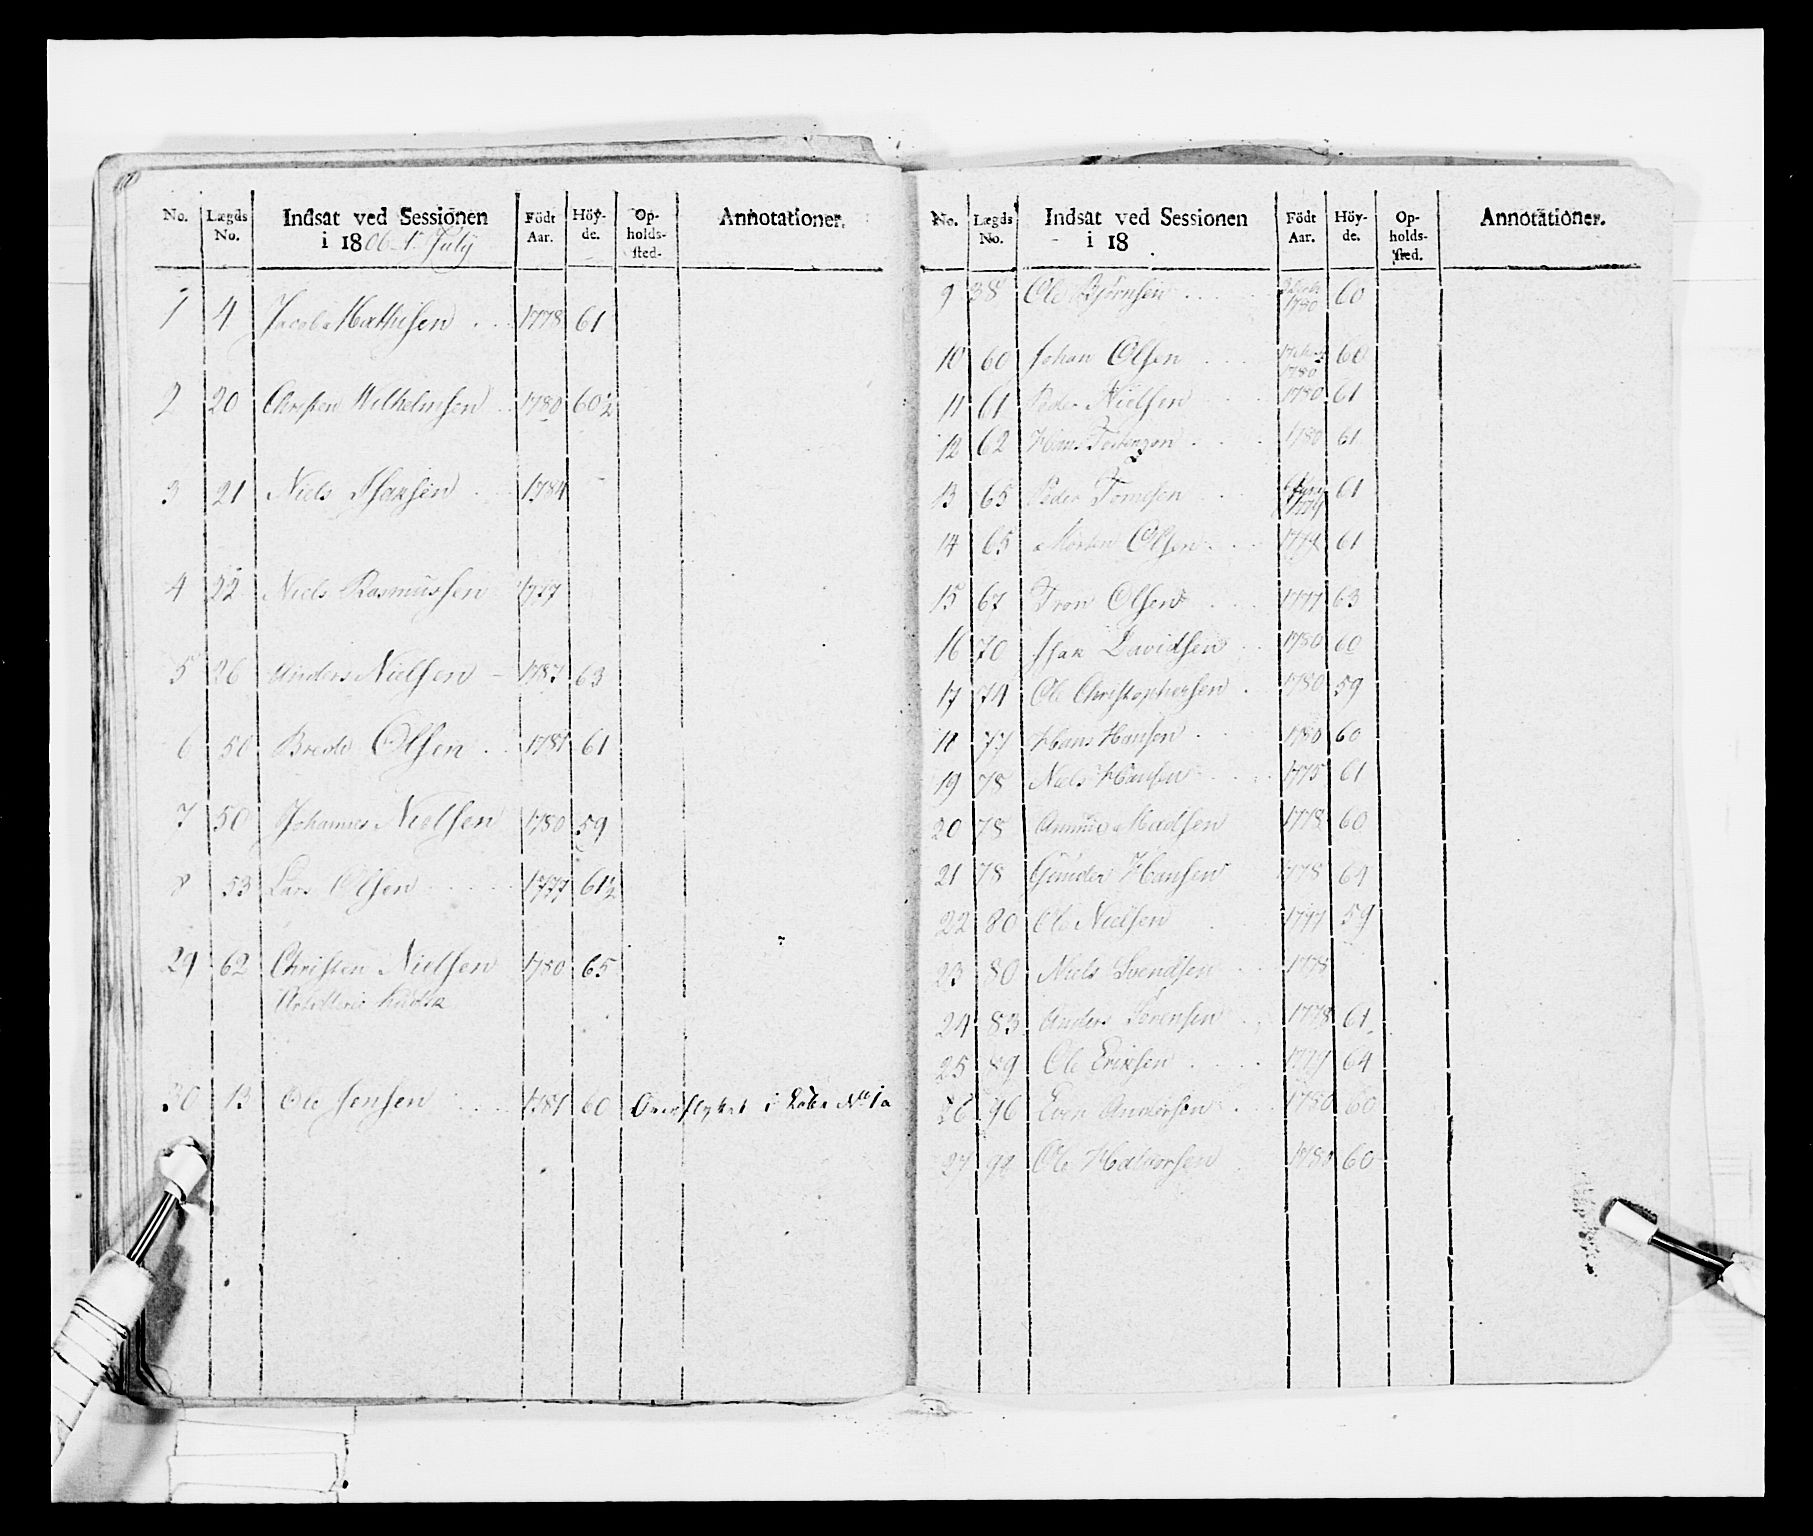 No. Lægds No. Indsat ved Sessionen i 1806 1 July Födt Aar. Höy-de. Op-holds-sted. Annotationer.
1 4 Jacob Mathisen 1778 61
2 20 Christen Wilhelmsen 1780 60½
3 21 Niels Isaksen 1784
4 22 Niels Rasmussen 1777
5 26 Anders Nielsen 1787 63
6 50 Brede Olsen 1781 61
7 50 Johannes Nielsen 1780 59
8 53 Lars Olsen 1777 61½
29 62 Christen Nielsen 1780 65
30 13 Ole Jensen 1781 60 Overflyttet i No 1
No. Lægds No. Indsat ved Sessionen i 18 Födt Aar. Höy-de. Op-holds-sted. Annotationer.
9 38 Ole Björnsen 1780 60
10 60 Johan Olsen 1780 60
11 61 Peder Nielsen 1780 61
12 62 Hans 1780 61
13 65 Peder Tomesen 61
14 65 Morten Olsen 61
15 67 Tron Olsen 1777 63
16 70 Isak Davidsen 1780 60
17 74 Ole Christophersen 1780 59
18 77 Hans Hansen 1780 60
19 78 Niels Hansen 1775 61
20 78 Madsen 1778 60
21 78 Gunder Hansen 1778 64
22 80 Ole Nielsen 1777 59
23 80 Niels Svendsen 1778
24 83 Anders Sörensen 1778 61
25 89 Ole Eriksen 64
26 96 Even Andersen 1780 60
27 Ole Halvorsen 1780 60